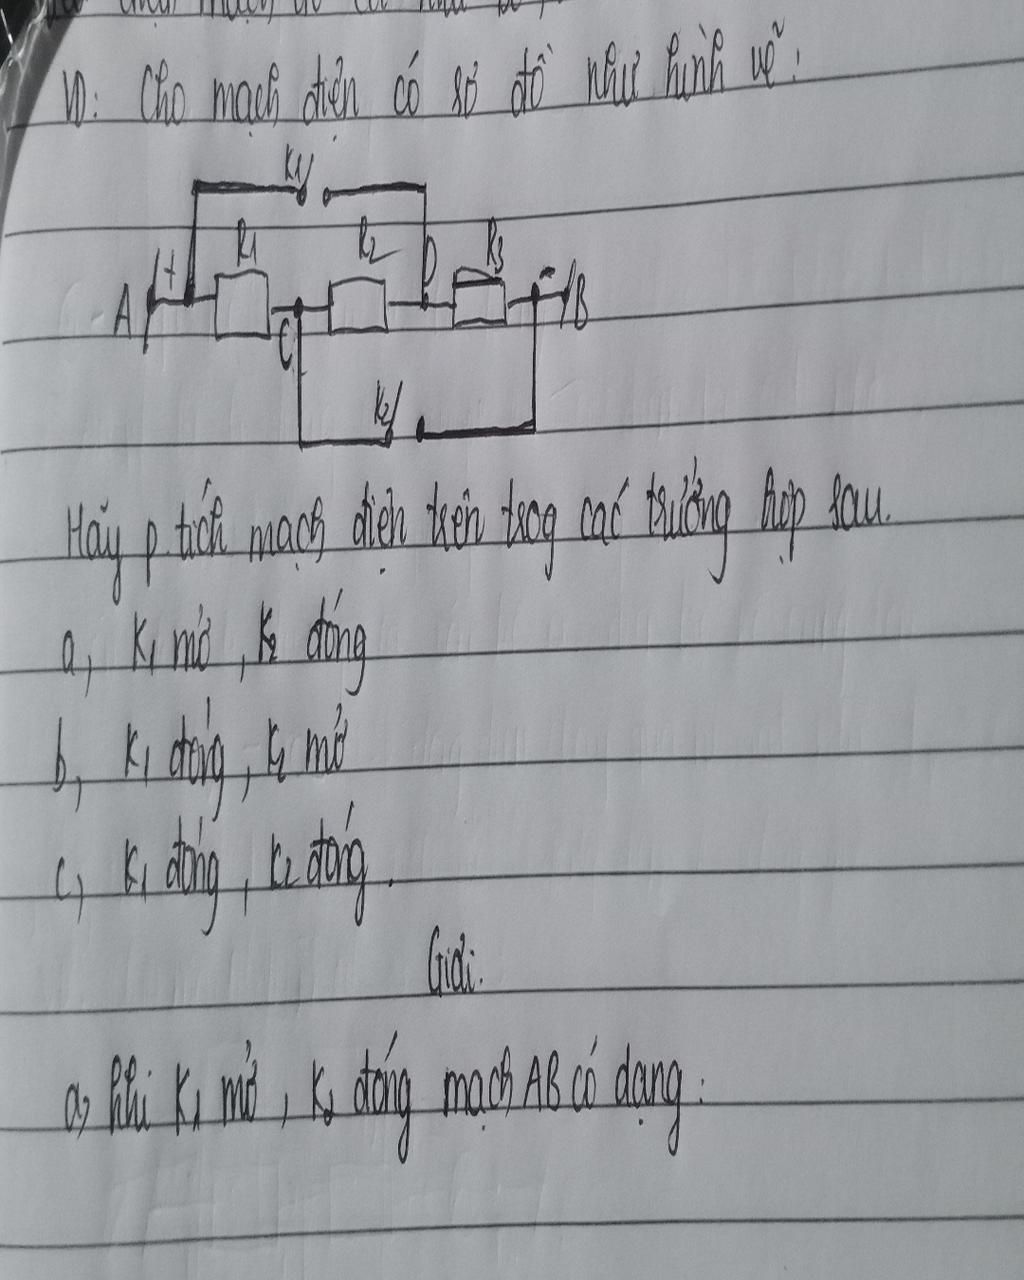 VD: Cho mạch điện có sơ đồ như hình vẽ:
K1
R1 R2 D R3
A + - B
C
K2
Hãy p.tích mạch điện trên trog các trường hợp sau.
a, K1 mở, K2 đóng
b, K1 đóng, K2 mở
c, K1 đóng, K2 đóng.
Giải.
a, Khi K1 mở, K2 đóng mạch AB có dạng: